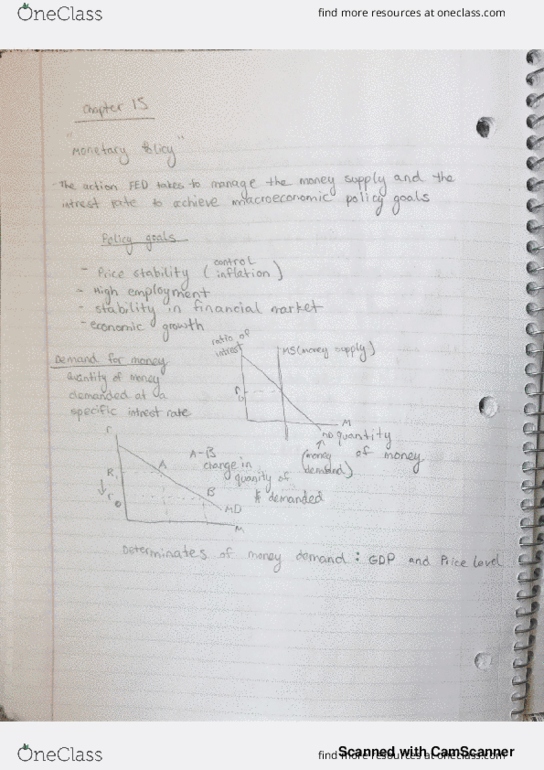 OneClass
find more resources at oneclass.com
Chapter 15
"Monetary Policy"
The action FED takes to manage the money supply and the
intrest rate to achieve macroeconomic policy goals
Policy goals
- Price stability (control inflation)
- High employment
- stability in financial market
- economic growth
Demand for money
Quantity of money
demanded at a
specific intrest rate
ratio of
intrest
MS (money supply)
r
M
quantity
of money
(money
demand)
r
R
A
A-B
change in
quanity of
$ demanded
B
r
MD
M
Determinates of money demand: GDP and Price Level
OneClass
find more resources at oneclass.com
Scanned with CamScanner